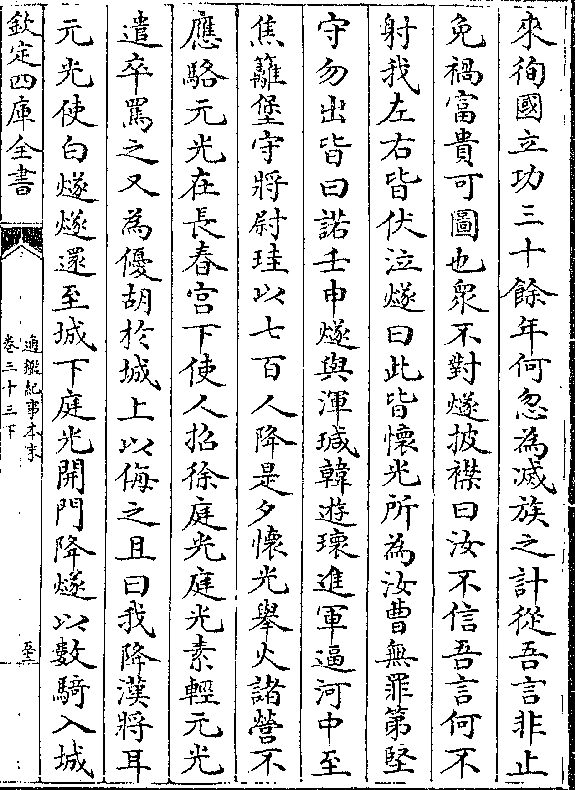 來徇國立功三十餘年何忽為滅族之計從吾言非止
免禍富貴可圖也衆不對燧披襟曰汝不信吾言何不
射我左右皆伏泣燧曰此皆懷光所為汝曹無罪第堅
守勿出皆曰諾壬申燧與渾瑊韓遊瓌進軍逼河中至
焦籬堡守將尉珪以七百人降是夕懷光舉火諸營不
應駱元光在長春宫下使人招徐庭光庭光素輕元光
遣卒罵之又為優胡於城上以侮之且曰我降漢將耳
元光使白燧燧還至城下庭光開門降燧以數騎入城
欽定四庫全書
通鑑紀事本末
卷三十三下